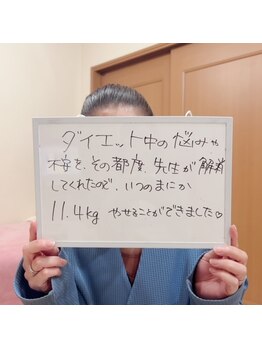 ダイエット中の悩みや
不安を、その都度、先生が解消
してくれたので、いつのまにか
11.4kg やせることができました♡